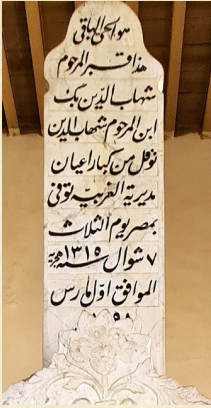 هو الحي الباقي
هذا قبر المرحوم
شهاب الدين بك
ابن المرحوم شهاب الدين
نوفل من كبار اعيان
مديرية الغربية توفى
بمصر يوم الثلاث
٧ شوال سنة ١٣١٥ هجرية
الموافق اول مارس